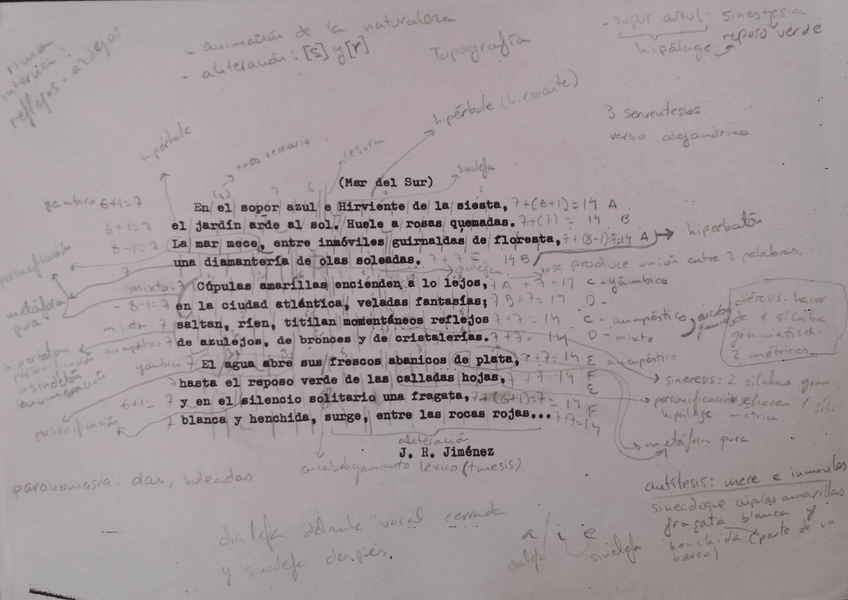 rima
interna:
reflejos - azulejos
- animación de la naturaleza
- aliteración: [s] y [r]
Topografía
- sopor azul: sinestesia
hipálage reposo verde
3 serventesios
verso alejandrino
hipérbole
cesura
hipérbole (hirviente)
sinalefa
(Mar del Sur)
En el sopor azul e Hirviente de la siesta, 7+(6+1)=14 A
el jardín arde al sol. Huele a rosas quemadas. 7+(7) = 14 B
La mar mece, entre inmóviles guirnaldas de floresta, 7+(8-1)=14 A
una diamantería de olas soleadas. 7+7= 14 B
Cúpulas amarillas encienden a lo lejos,
en la ciudad atlántica, veladas fantasías;
saltan, ríen, titilan momentáneos reflejos
de azulejos, de bronces y de cristalerías.
El agua abre sus frescos abanicos de plata,
hasta el reposo verde de las calladas hojas,
y en el silencio solitario una fragata,
blanca y henchida, surge, entre las rocas rojas...
J. R. Jiménez
yámbico 6+1=7
6+1=7
8-1=7
personificación
metáfora
pura
mixto 7
8-1=7
mixto 7
anapéstico 7
hiperbaton
personificación
asíndeton
enumeración
yámbico 7
6+1=7
personificación
hiperbatón
se produce unión entre 2 palabras.
C - yámbico
D -
C - anapéstico
D - mixto
diéresis: hacer
de 1 sílaba
gramatical
2 métricas
E anapéstico
F
E
F
sinéresis: 2 sílabas gram.
personificación
hipálage métrica
metáfora pura
aliteración
encabalgamiento léxico (tmesis)
paronomasia: olas, soleadas
antítesis: mece e inmóviles
sinécdoque: cúpulas amarillas
fragata blanca y
henchida (parte de un
barco)
dialefa delante vocal cerrada
y sinalefa después.
a / i e
dialefa sinalefa